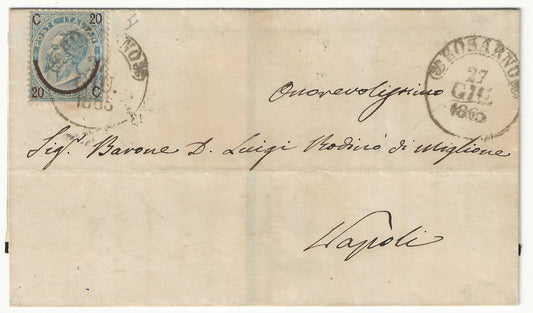 C 20
POSTE ITALIANE
20 C
ROSARNO
1865
ROSARNO
27
GIU.
1865
Onorevolissimo
Sig. Barone D. Luigi Rodinò di Miglione
Napoli